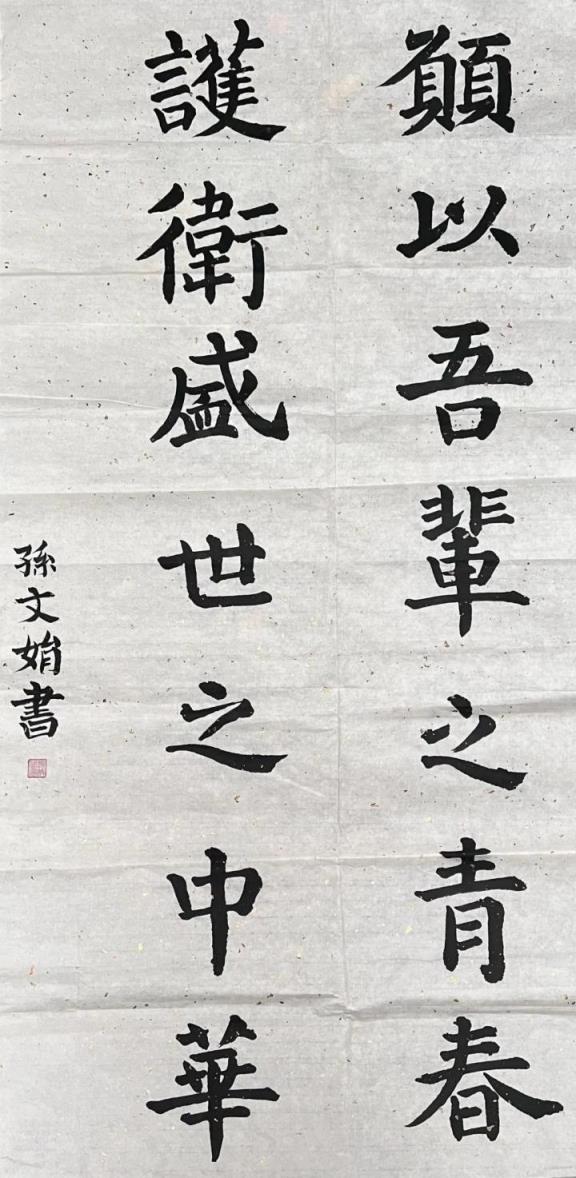 願以吾輩之青春
護衛盛世之中華
孫文娟書